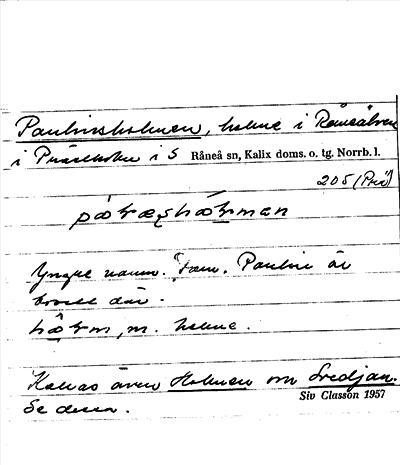 Paulinsholmen, holme i Råneälven
i Prästholm i S Råneå sn, Kalix doms. o. tg. Norrb. l.
205 (Prä)
Yngre namn. Fam. Paulin är
bosatt där.
m. holme.
Kallas även Holmen om Svedjan.
Se dessa.
Siv Classon 1957